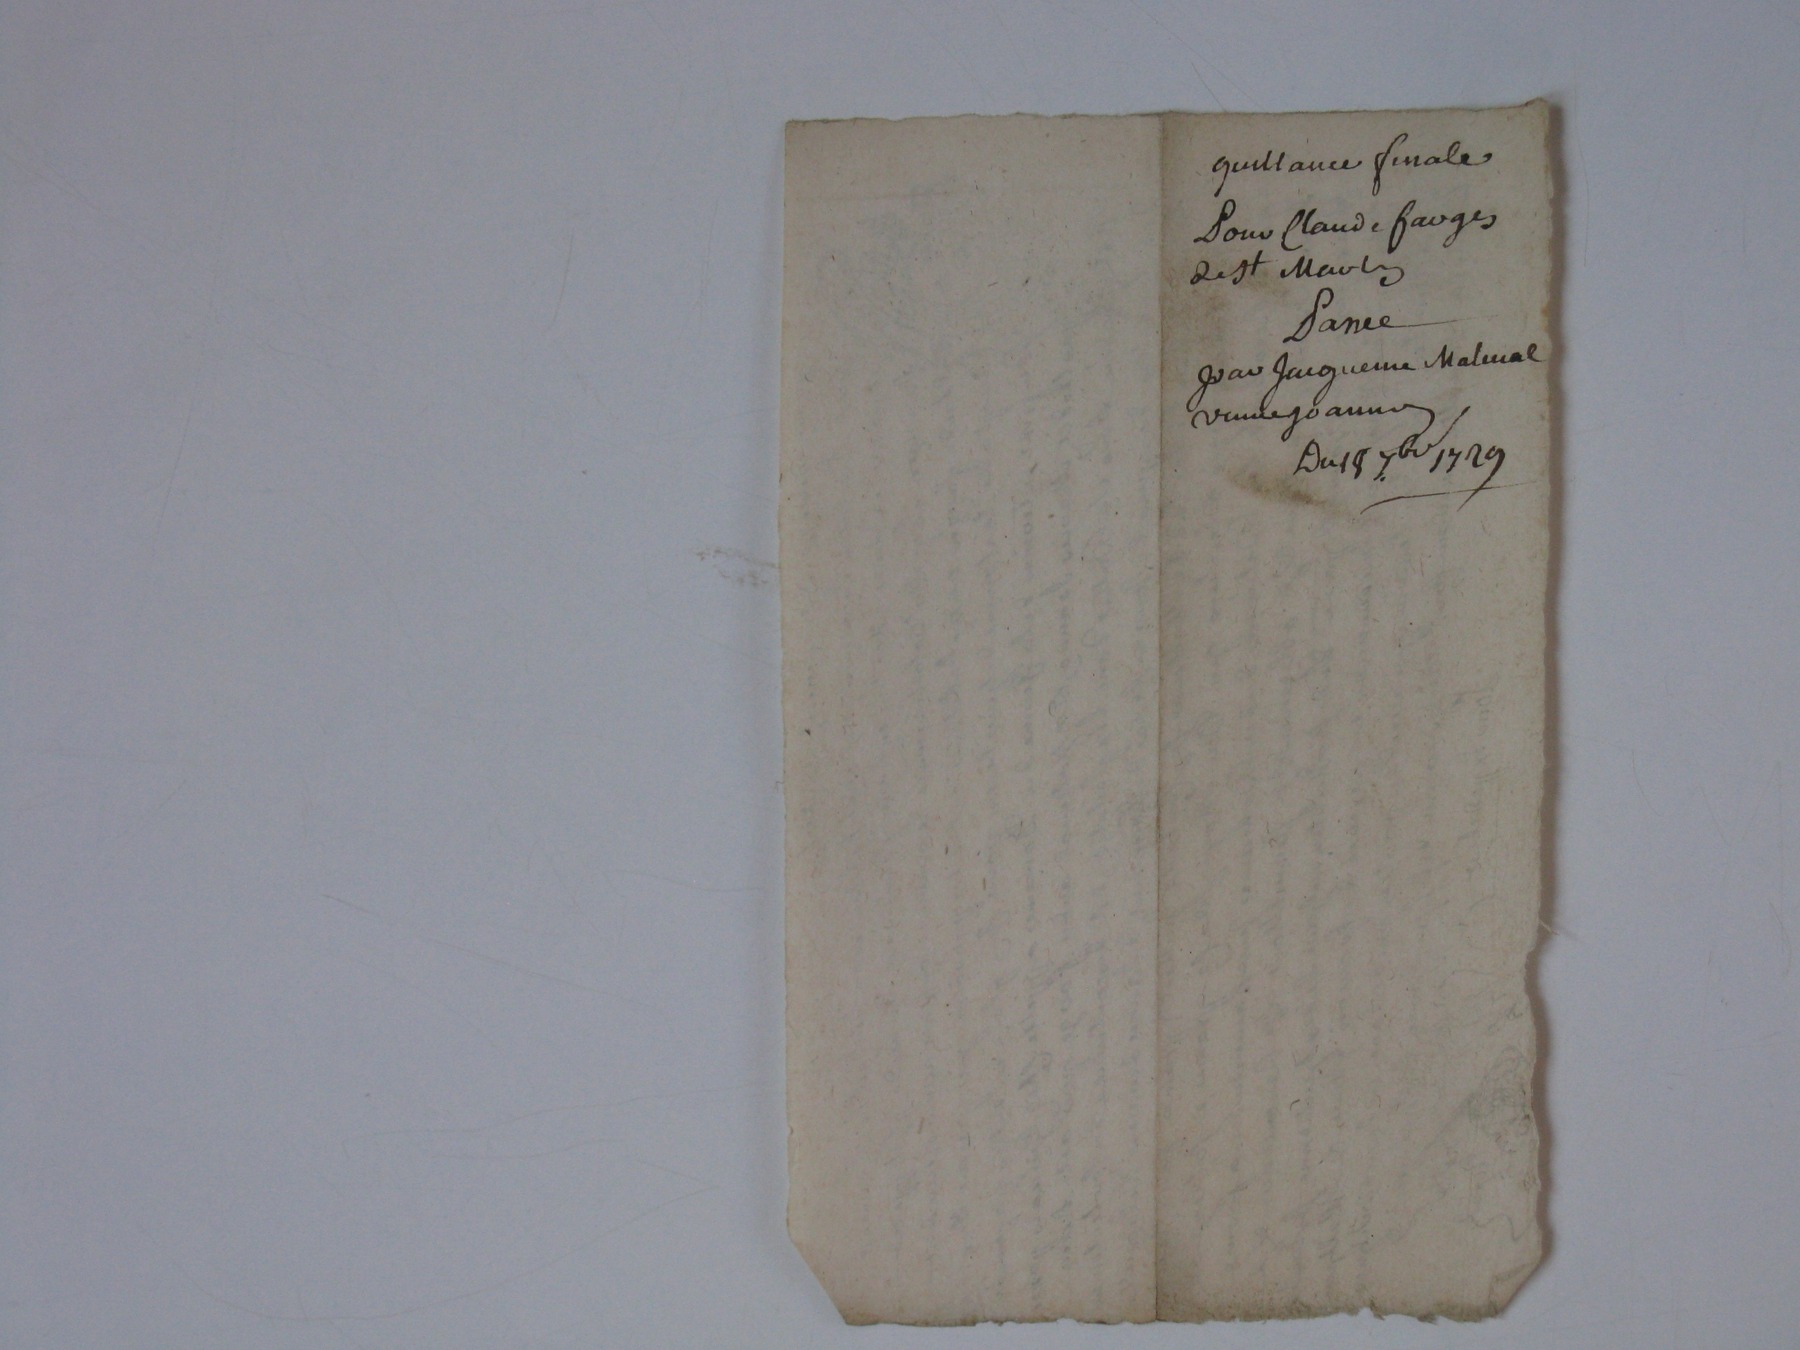 quittance finale
Pour Claude farges
de st Martin
Passee
par Jacqueme Matenal
veuve joanne
Du 18 7bre 1729